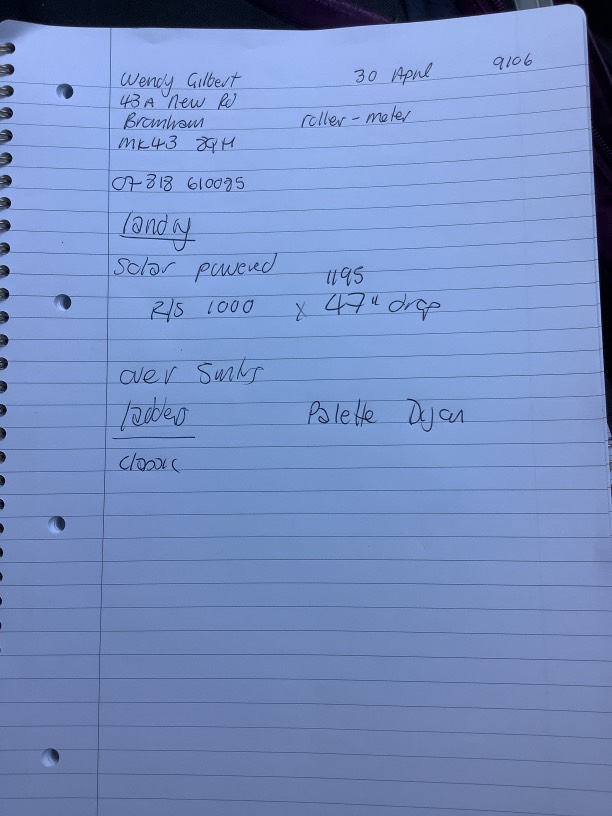 Wendy Gilbert 30 April 9106
43A New Rd
Bromham roller-motor
MK43 8QH
07818 610095
landing
Solar powered 1195
R/S 1000 x 47" drop
over
ladder Palette Dijon
classic